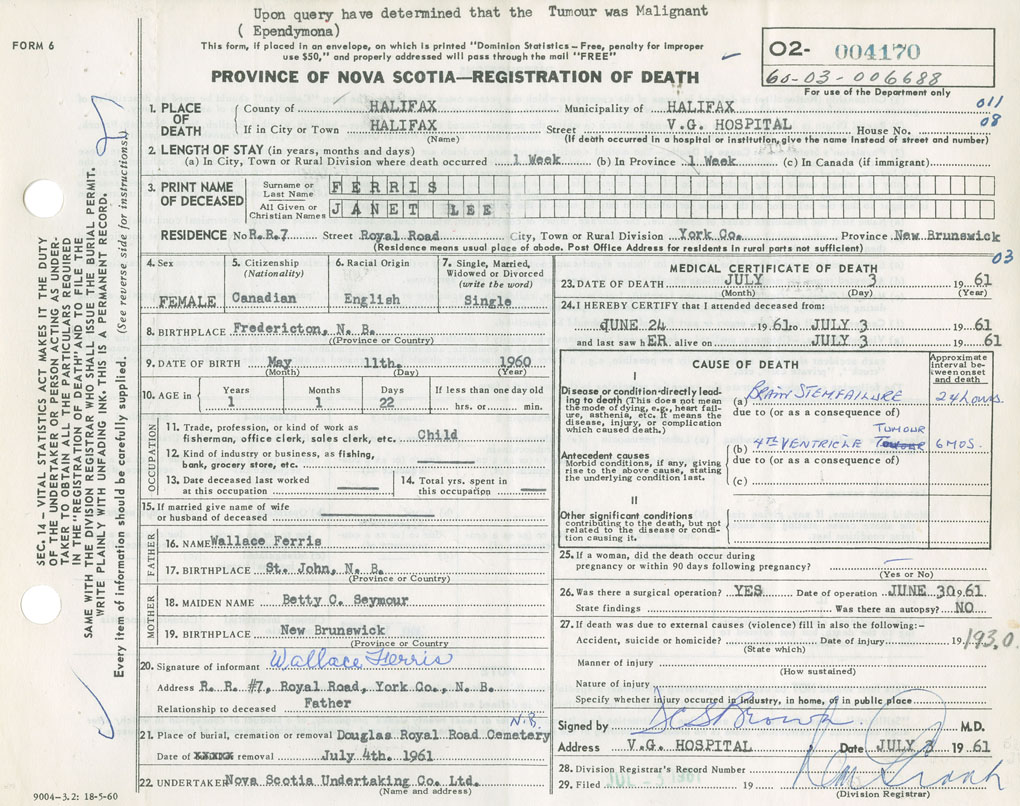 Upon query have determined that the Tumour was Malignant
( Ependymona)
FORM 6
This form, if placed in an envelope, on which is printed "Dominion Statistics – Free, penalty for improper
use $50," and properly addressed will pass through the mail "FREE"
02- 004170
60-03-006688
For use of the Department only
PROVINCE OF NOVA SCOTIA—REGISTRATION OF DEATH
011
08
1. PLACE OF DEATH
County of HALIFAX Municipality of HALIFAX
If in City or Town HALIFAX Street V.G. HOSPITAL House No.
(Name) (If death occurred in a hospital or institution, give the name instead of street and number)
2. LENGTH OF STAY (in years, months and days)
(a) In City, Town or Rural Division where death occurred 1 Week (b) In Province 1 Week (c) In Canada (if immigrant)
3. PRINT NAME OF DECEASED
Surname or Last Name FERRIS
All Given or Christian Names JANET LEE
RESIDENCE No R.R.7 Street Royal Road City, Town or Rural Division York Co. Province New Brunswick
(Residence means usual place of abode. Post Office Address for residents in rural parts not sufficient)
03
4. Sex
FEMALE
5. Citizenship
(Nationality)
Canadian
6. Racial Origin
English
7. Single, Married,
Widowed or Divorced
(write the word)
Single
8. BIRTHPLACE Fredericton, N. B.
((Province or Country)
9. DATE OF BIRTH May 11th. 1960
(Month) (Day) (Year)
10. AGE in
Years Months Days If less than one day old
1 1 22 hrs. or min.
OCCUPATION
11. Trade, profession, or kind of work as
fisherman, office clerk, sales clerk, etc. Child
12. Kind of industry or business, as fishing,
bank, grocery store, etc.
13. Date deceased last worked
at this occupation
14. Total yrs. spent in
this occupation
15. If married give name of wife
or husband of deceased
FATHER
16. NAME Wallace Ferris
17. BIRTHPLACE St. John, N. B.
(Province or Country)
MOTHER
18. MAIDEN NAME Betty C. Seymour
19. BIRTHPLACE New Brunswick
(Province or Country)
20. Signature of informant Wallace Ferris
Address R. R. #7, Royal Road, York Co., N. B.
Relationship to deceased Father
N.B.
21. Place of burial, cremation or removal Douglas Royal Road Cemetery
Date of removal July 4th. 1961
22. UNDERTAKER Nova Scotia Undertaking Co. Ltd.
(Name and address)
9004-3.2: 18-5-60
MEDICAL CERTIFICATE OF DEATH
23. DATE OF DEATH JULY 3 1961
(Month) (Day) (Year)
24. I HEREBY CERTIFY that I attended deceased from:
JUNE 24 1961 to JULY 3 1961
and last saw hER alive on JULY 3 1961
CAUSE OF DEATH
Approximate
interval be-
tween onset
and death
I
Disease or condition directly lead-
ing to death (This does not mean
the mode of dying, e.g., heart fail-
ure, asthenia, etc. It means the
disease, injury, or complication
which caused death.)
(a) BRAIN STEM FAILURE 24 hours.
due to (or as a consequence of)
TUMOUR
(b) 4TH VENTRICLE Tumour 6 MOS.
due to (or as a consequence of)
(c)
Antecedent causes
Morbid conditions, if any, giving
rise to the above cause, stating
the underlying condition last.
II
Other significant conditions
contributing to the death, but not
related to the disease or condi-
tion causing it.
25. If a woman, did the death occur during
pregnancy or within 90 days following pregnancy?
(Yes or No)
26. Was there a surgical operation? YES Date of operation JUNE 30 1961
State findings Was there an autopsy? NO
27. If death was due to external causes (violence) fill in also the following:–
Accident, suicide or homicide? Date of injury 19
(State which)
193.0
Manner of injury
(How sustained)
Nature of injury
Specify whether injury occurred in industry, in home, or in public place
Signed by M.D.
Address V.G. HOSPITAL Date JULY 3 1961
28. Division Registrar's Record Number
29. Filed 19
(Division Registrar)
SEC. 14 – VITAL STATISTICS ACT MAKES IT THE DUTY
OF THE UNDERTAKER OR PERSON ACTING AS UNDER-
TAKER TO OBTAIN ALL THE PARTICULARS REQUIRED
IN THE "REGISTRATION OF DEATH" AND TO FILE THE
SAME WITH THE DIVISION REGISTRAR WHO SHALL ISSUE THE BURIAL PERMIT.
WRITE PLAINLY WITH UNFADING INK. THIS IS A PERMANENT RECORD.
Every item of information should be carefully supplied. (See reverse side for instructions)